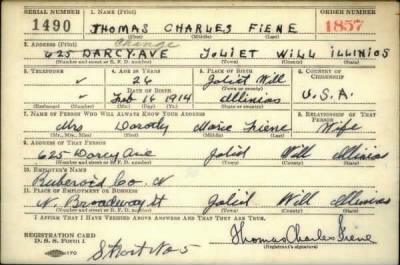 SERIAL NUMBER 1. NAME (Print) ORDER NUMBER
1490 THOMAS CHARLES FIENE 1857
(First) (Middle) (Last)
2. ADDRESS (Print) Change
625 DARCY-AVE JOLIET WILL ILLINIOS
(Number and street or R. F. D. number) (Town) (County) (State)
3. TELEPHONE 4. AGE IN YEARS 5. PLACE OF BIRTH 6. COUNTRY OF CITIZENSHIP
26 Joliet Will
DATE OF BIRTH (Town or county)
Feb 16 1914 Illinios U.S.A.
(Exchange) (Number) (Mo.) (Day) (Yr.) (State or country)
7. NAME OF PERSON WHO WILL ALWAYS KNOW YOUR ADDRESS 8. RELATIONSHIP OF THAT PERSON
Mrs Dorothy Marie Fiene Wife
(Mr., Mrs., Miss) (First) (Middle) (Last)
9. ADDRESS OF THAT PERSON
625 Darcy Ave Joliet Will Illinios
(Number and street or R. F. D. number) (Town) (County) (State)
10. EMPLOYER'S NAME
Ruberoid Co.
11. PLACE OF EMPLOYMENT OR BUSINESS
N. Broadway St Joliet Will Illinios
(Number and street or R. F. D. number) (Town) (County) (State)
I AFFIRM THAT I HAVE VERIFIED ABOVE ANSWERS AND THAT THEY ARE TRUE.
REGISTRATION CARD
D. S. S. Form 1 Thomas Charles Fiene
(Registrant's signature)